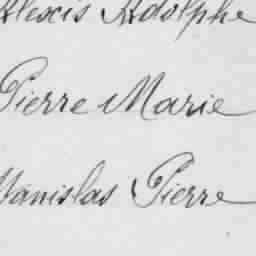 Alexis Adolphe
Pierre Marie
Stanislas Pierre